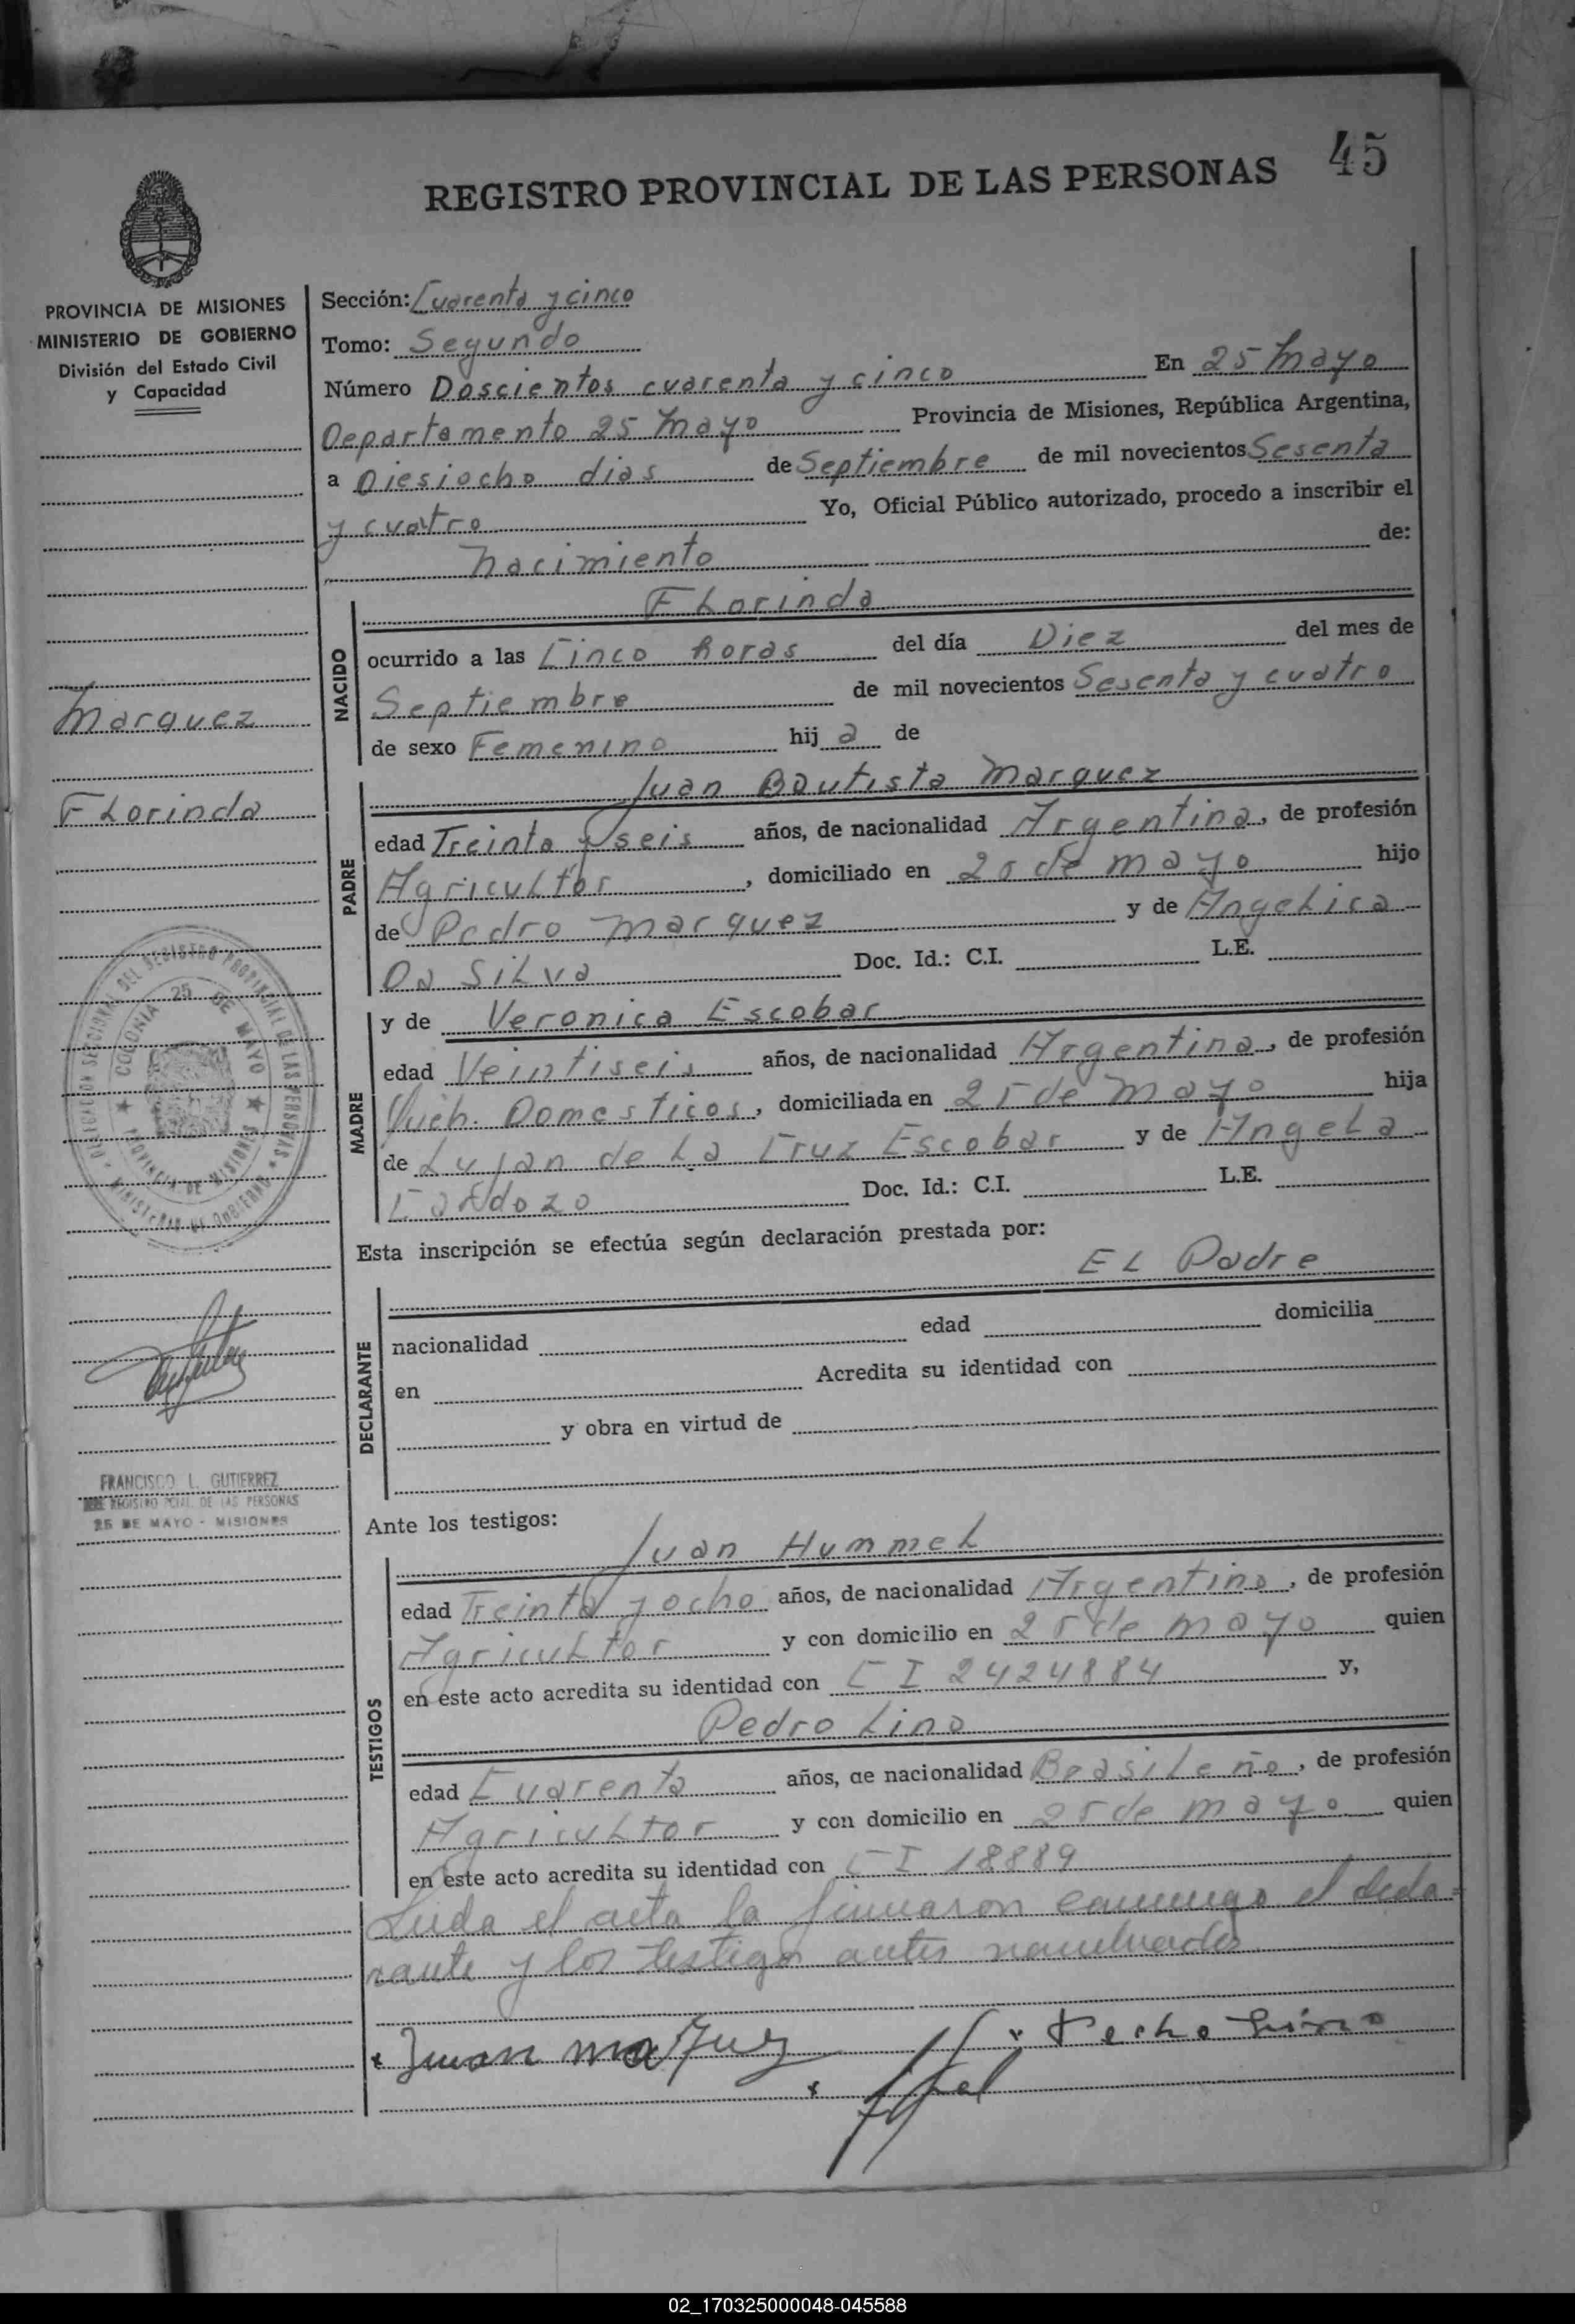 45
REGISTRO PROVINCIAL DE LAS PERSONAS
PROVINCIA DE MISIONES
MINISTERIO DE GOBIERNO
División del Estado Civil
y Capacidad
Marquez
Florinda
DELEGACION SECCIONAL DEL REGISTRO PROVINCIAL DE LAS PERSONAS
MINISTERIO DE GOBIERNO
COLONIA 25 DE MAYO
PROVINCIA DE MISIONES
FRANCISCO L. GUTIERREZ
REGISTRO PCIAL. DE LAS PERSONAS
25 DE MAYO - MISIONES
Sección: Cuarenta y cinco
Tomo: Segundo
Número Doscientos cuarenta y cinco En 25 Mayo
Departamento 25 Mayo Provincia de Misiones, República Argentina,
a Diesiocho dias de Septiembre de mil novecientos Sesenta
y cuatro Yo, Oficial Público autorizado, procedo a inscribir el
Nacimiento de:
NACIDO
Florinda
ocurrido a las Cinco horas del día Diez del mes de
Septiembre de mil novecientos Sesenta y cuatro
de sexo Femenino hij a de
PADRE
Juan Bautista Marquez
edad Treinta y seis años, de nacionalidad Argentina, de profesión
Agricultor, domiciliado en 25 de mayo hijo
de Pedro Marquez y de Angelica
Da Silva Doc. Id.: C.I. L.E.
MADRE
y de Veronica Escobar
edad Veintiseis años, de nacionalidad Argentina, de profesión
Domesticos, domiciliada en 25 de Mayo hija
de Lujan de la Cruz Escobar y de Angela
Cardozo Doc. Id.: C.I. L.E.
Esta inscripción se efectúa según declaración prestada por:
El Padre
DECLARANTE
nacionalidad edad domicilia
en Acredita su identidad con
y obra en virtud de
Ante los testigos:
TESTIGOS
Juan Hummel
edad Treinta y ocho años, de nacionalidad Argentino, de profesión
Agricultor y con domicilio en 25 de mayo quien
en este acto acredita su identidad con C I 2424884 y,
Pedro Lino
edad Cuarenta años, de nacionalidad Brasileño, de profesión
Agricultor y con domicilio en 25 de mayo quien
en este acto acredita su identidad con C I 18889
Leida el acta la firmaron conmigo el decla-
rante y los testigos antes nombrados
Juan
Lino
02_170325000048-045588